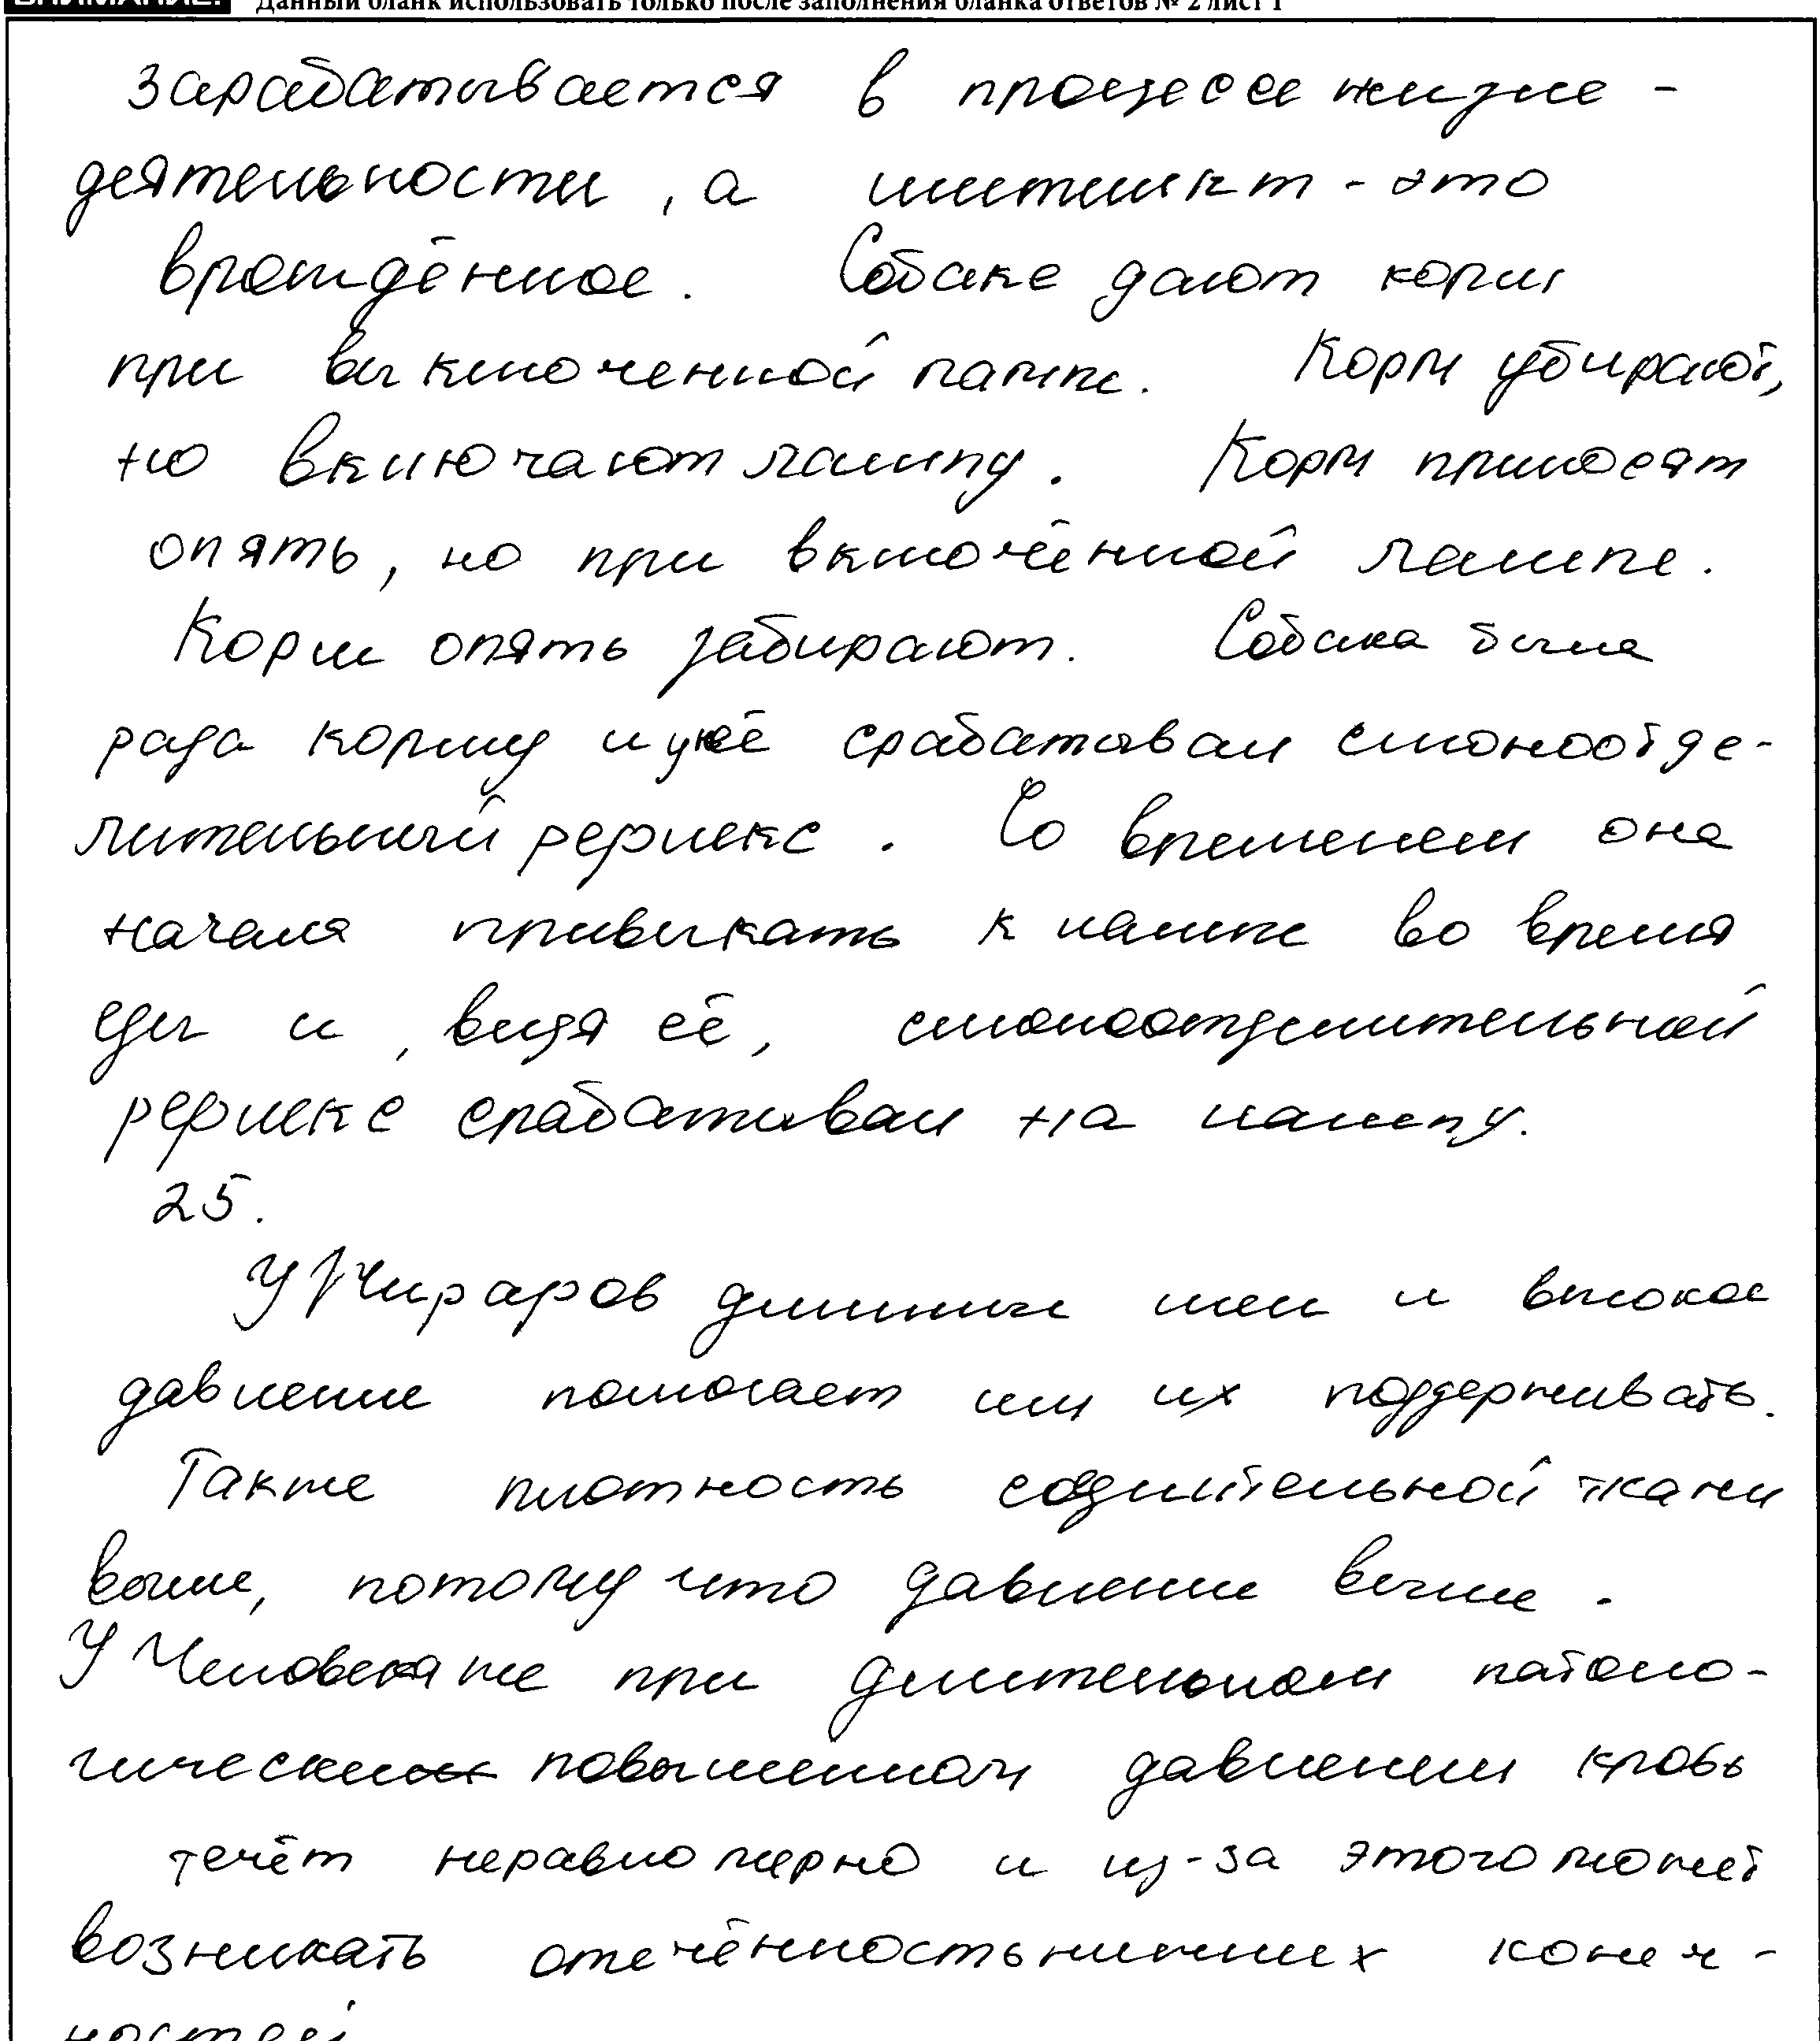 ВНИМАНИЕ! Данный бланк использовать только после заполнения бланка ответов № 2 лист 1
зарабатывается в процессе жизне-
деятельности, а инстинкт - это
врождённое. Собаке дают корм
при выключенной лампе. Корм убирают,
но включают лампу. Корм приносят
опять, но при включённой лампе.
Корм опять забирают. Собака была
рада корму и у неё срабатывал слюноотде-
лительный рефлекс. Со временем она
начала привыкать к лампе во время
еды и, видя её, слюноотделительной
рефлекс срабатывал на лампу.
25.
У Жирафов длинные шеи и высокое
давление помогает им их поддерживать.
Также плотность соединительной ткани
выше, потому что давление выше.
У Человека же при длительном патоло-
гически повышенном давлении кровь
течёт неравномерно и из-за этого может
возникать отечённость нижних конеч-
ностей